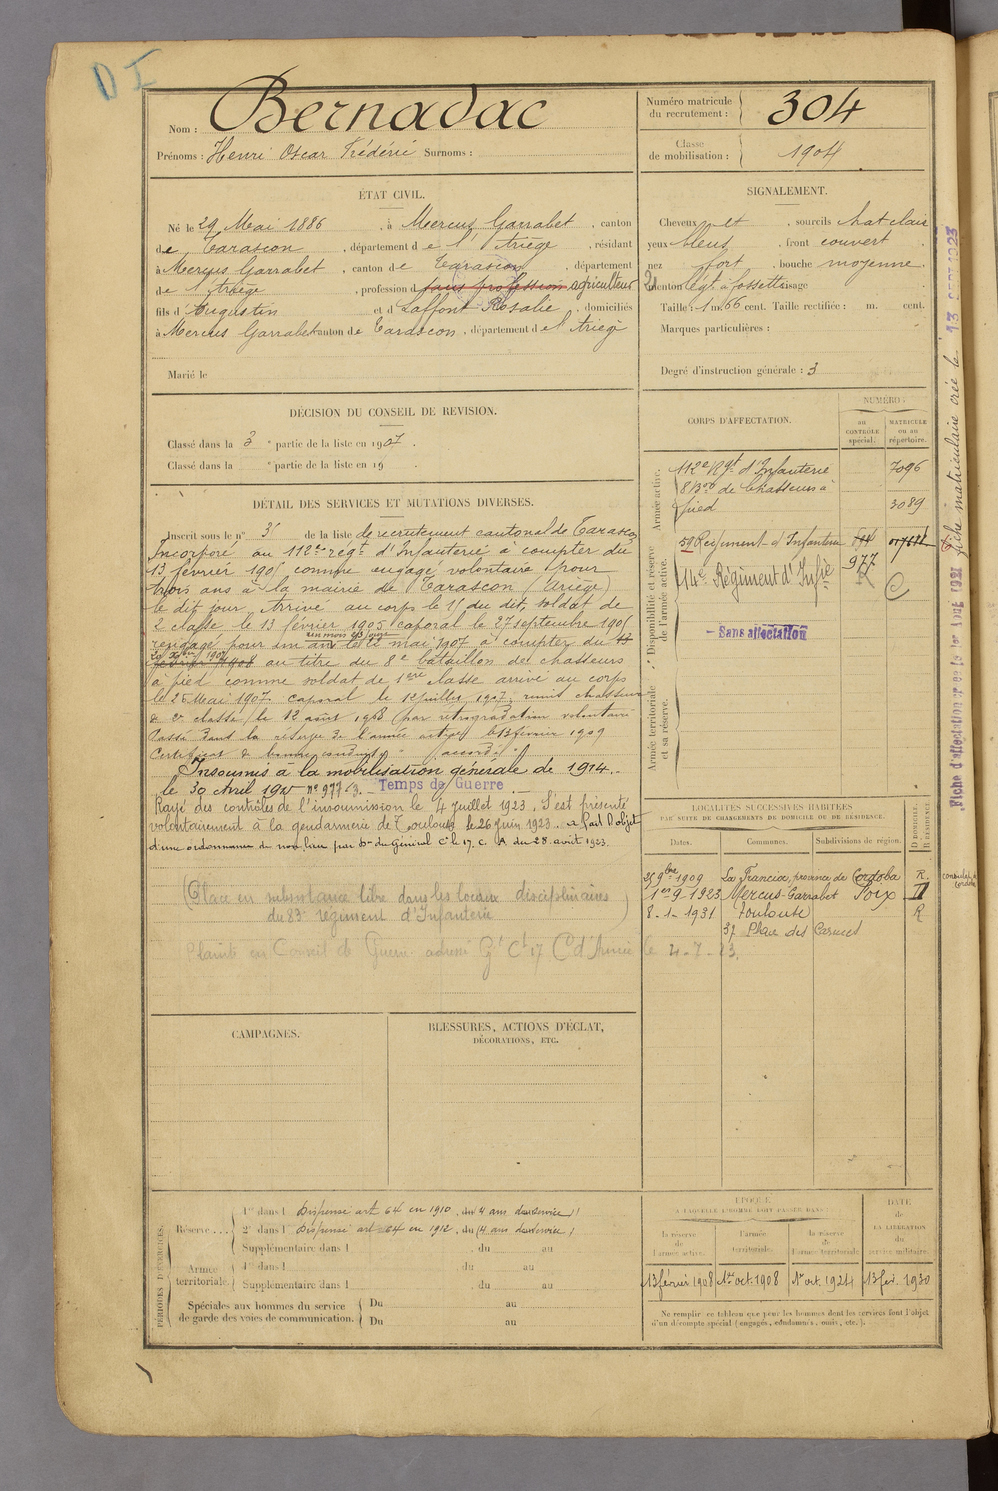 D I
Nom : Bernadac
Prénoms : Henri Oscar Frédéric Surnoms :
Numéro matricule du recrutement : 304
Classe de mobilisation : 1904
ÉTAT CIVIL.
Né le 29 Mai 1886, à Mercus Garrabet, canton
de Tarascon, département de l'Ariège, résidant
à Mercus Garrabet, canton de Tarascon, département
de l'Ariège, profession d sans profession agriculteur
fils d'Augustin et d Laffont Rosalie, domiciliés
à Mercus Garrabet canton de Tarascon, département de l'Ariège
Marié le
SIGNALEMENT.
Cheveux et, sourcils chat clair
yeux bleus, front couvert
nez fort, bouche moyenne.
menton légt à fossette visage
Taille : 1 m. 66 cent. Taille rectifiée : m. cent.
Marques particulières :
Degré d'instruction générale : 3
DÉCISION DU CONSEIL DE REVISION.
Classé dans la 3e partie de la liste en 1907.
Classé dans la e partie de la liste en 19
DÉTAIL DES SERVICES ET MUTATIONS DIVERSES.
Inscrit sous le n° 3 de la liste de recrutement cantonal de Tarascon
Incorporé au 112e régt d'Infanterie à compter du
13 février 1905 comme engagé volontaire pour
trois ans à la mairie de Tarascon (Ariège)
le dit jour, Arrivé au corps le 15 du dit, soldat de
2e classe le 13 février 1905 caporal le 27 septembre 190
rengagé pour un an le mai 1907 à compter du 13
février 1908 au titre du 8e bataillon de chasseurs
à pied comme soldat de 1ère classe arrivé au corps
le 25 Mai 1907. Caporal le 12 juillet 1907, remis chasseur
de 2e classe le 12 août 1908 (par rétrogradation volontaire
Passé dans la réserve de l'armée active le 13 février 1909
Certificat de bonne conduite "accordé"
Insoumis à la mobilisation générale de 1914.
le 30 Avril 1915 n° 977/3. – Temps de Guerre. –
Rayé des contrôles de l'insoumission le 4 Juillet 1923, S'est présenté
volontairement à la gendarmerie de Toulouse le 26 Juin 1923. a fait l'objet
d'une ordonnance de non lieu par du Général Ct le 17. C. A. du 28. août 1923.
(Placé en subsistance libre dans les locaux disciplinaires
du 83e régiment d'Infanterie)
Plainte en Conseil de Guerre adressé Gl Ct 17 C d'Armée le 4-7-23.
CORPS D'AFFECTATION.
NUMÉRO :
au CONTRÔLE spécial.
MATRICULE ou au répertoire.
Armée active.
112e Rgt d'Infanterie 7096
8e Bon de Chasseurs à
pied 3089
Disponibilité et réserve de l'armée active.
59 Régiment d'Infanterie
14e Régiment d'Infie 977
– Sans affectation
Armée territoriale et sa réserve.
LOCALITÉS SUCCESSIVES HABITÉES
PAR SUITE DE CHANGEMENTS DE DOMICILE OU DE RÉSIDENCE.
Dates. Communes. Subdivisions de région. D DOMICILE. R RÉSIDENCE.
25 9bre 1909 La Francia, province de Cordoba R. consulat de Cordoba
1er-9-1923 Mercus-Garrabet Foix D
8-1-1931 Toulouse R
37 Place des Carmes
Fiche matriculaire créée le 13 SEPT 1923
Fiche d'affectation créée le 1er Aout 1921
CAMPAGNES.
BLESSURES, ACTIONS D'ÉCLAT,
DÉCORATIONS, ETC.
PÉRIODES D'EXERCICES.
Réserve....
1re dans l Dispensé art 64 en 1910, du (4 ans de service)
2e dans l Dispensé art 64 en 1912, du (4 ans de service)
Supplémentaire dans l du au
Armée territoriale.
1re dans l du au
Supplémentaire dans l du au
Spéciales aux hommes du service de garde des voies de communication.
Du au
Du au
ÉPOQUE À LAQUELLE L'HOMME DOIT PASSER DANS :
la réserve de l'armée active.
l'armée territoriale.
la réserve de l'armée territoriale
DATE de LA LIBÉRATION du service militaire.
13 février 1908 1er oct. 1908 1er oct. 1924 13 fév. 1930
Ne remplir ce tableau que pour les hommes dont les services font l'objet
d'un décompte spécial (engagés, condamnés, omis, etc.).